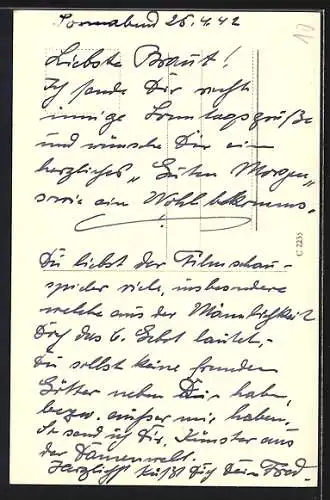 Sonnabend 25.4.42
Liebste Braut!
Ich sende Dir recht
innige Sonntagsgrüße
und wünsche Dir ein
herzliches „Guten Morgen"
sowie ein Wohl bekomms.
!
Du liebst der Filmschau-
spieler viele, insbesondere
welche aus der Männlichkeit
Doch das 6. Gebot lautet,-
Du sollst keine fremden
Götter neben Dir haben,
bezw. außer mir haben,
send ich Dir, Künstler aus
der Damenwelt.
Herzlichst küßt Dich Dein Fred.
C 2235
10